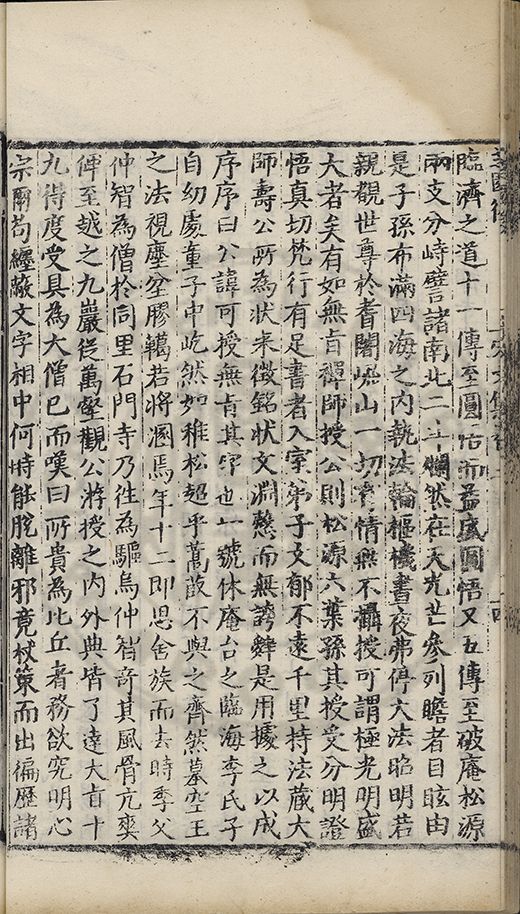 臨濟之道十一傳至圓悟而益盛圓悟又五傳至破庵松源
兩支分峙譬諸南北二斗爛然在天光芒參列瞻者目眩由
是子孫布滿四海之內執法輪樞機晝夜弗停大法昭明若
親覩世尊於耆闍崛山一切有情無不攝授可謂極光明盛
大者矣有如無旨禪師授公則松源六葉孫其授受分明證
悟真切梵行有足書者入室弟子文郁不遠千里持法藏大
師壽公所為狀來徵銘狀文淵慤而無誇辭是用據之以成
序序曰公諱可授無旨其字也一號休庵台之臨海李氏子
自幼處童子中屹然如稚松超乎蒿蔌不與之齊然慕空王
之法視塵坌膠轕若將溷焉年十二即思舍族而去時季父
仲智為僧於同里石門寺乃往為驅烏仲智奇其風骨亢爽
俾至越之九巖從萬壑觀公游授之內外典皆了達大旨十
九得度受具為大僧已而嘆曰所貴為比丘者務欲究明心
宗爾苟纏蔽文字相中何時能脫離邪竟杖策而出徧歷諸